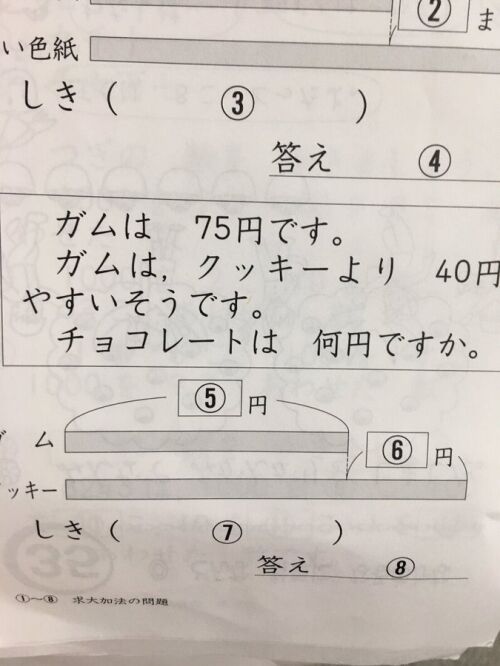 ② ま
い色紙
しき( ③ )
答え ④
ガムは 75円です。
ガムは, クッキーより 40円
やすいそうです。
チョコレートは 何円ですか。
⑤ 円
ム
⑥ 円
ッキー
しき( ⑦ )
答え ⑧
①〜⑧ 求大加法の問題